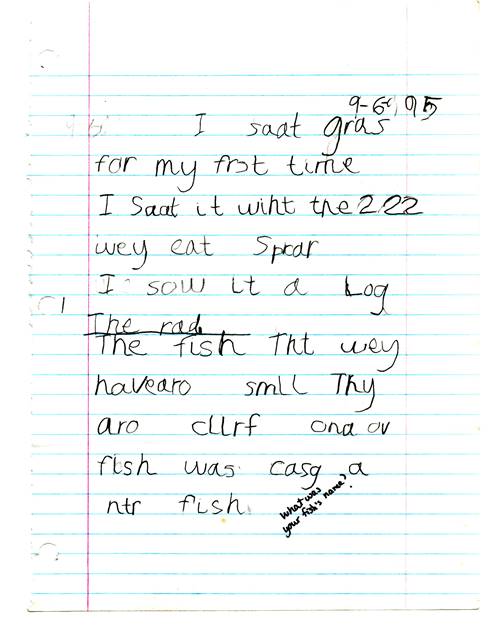 9-6-95
I saat gras
for my frst time
I Saat it wiht the 2.22
wey eat Sprar
I sow it a Log
The rad
The fish Tht wey
havearo smll Thy
aro cllrf ona ov
fish was casg a
ntr fish.
What was
your fish's name?